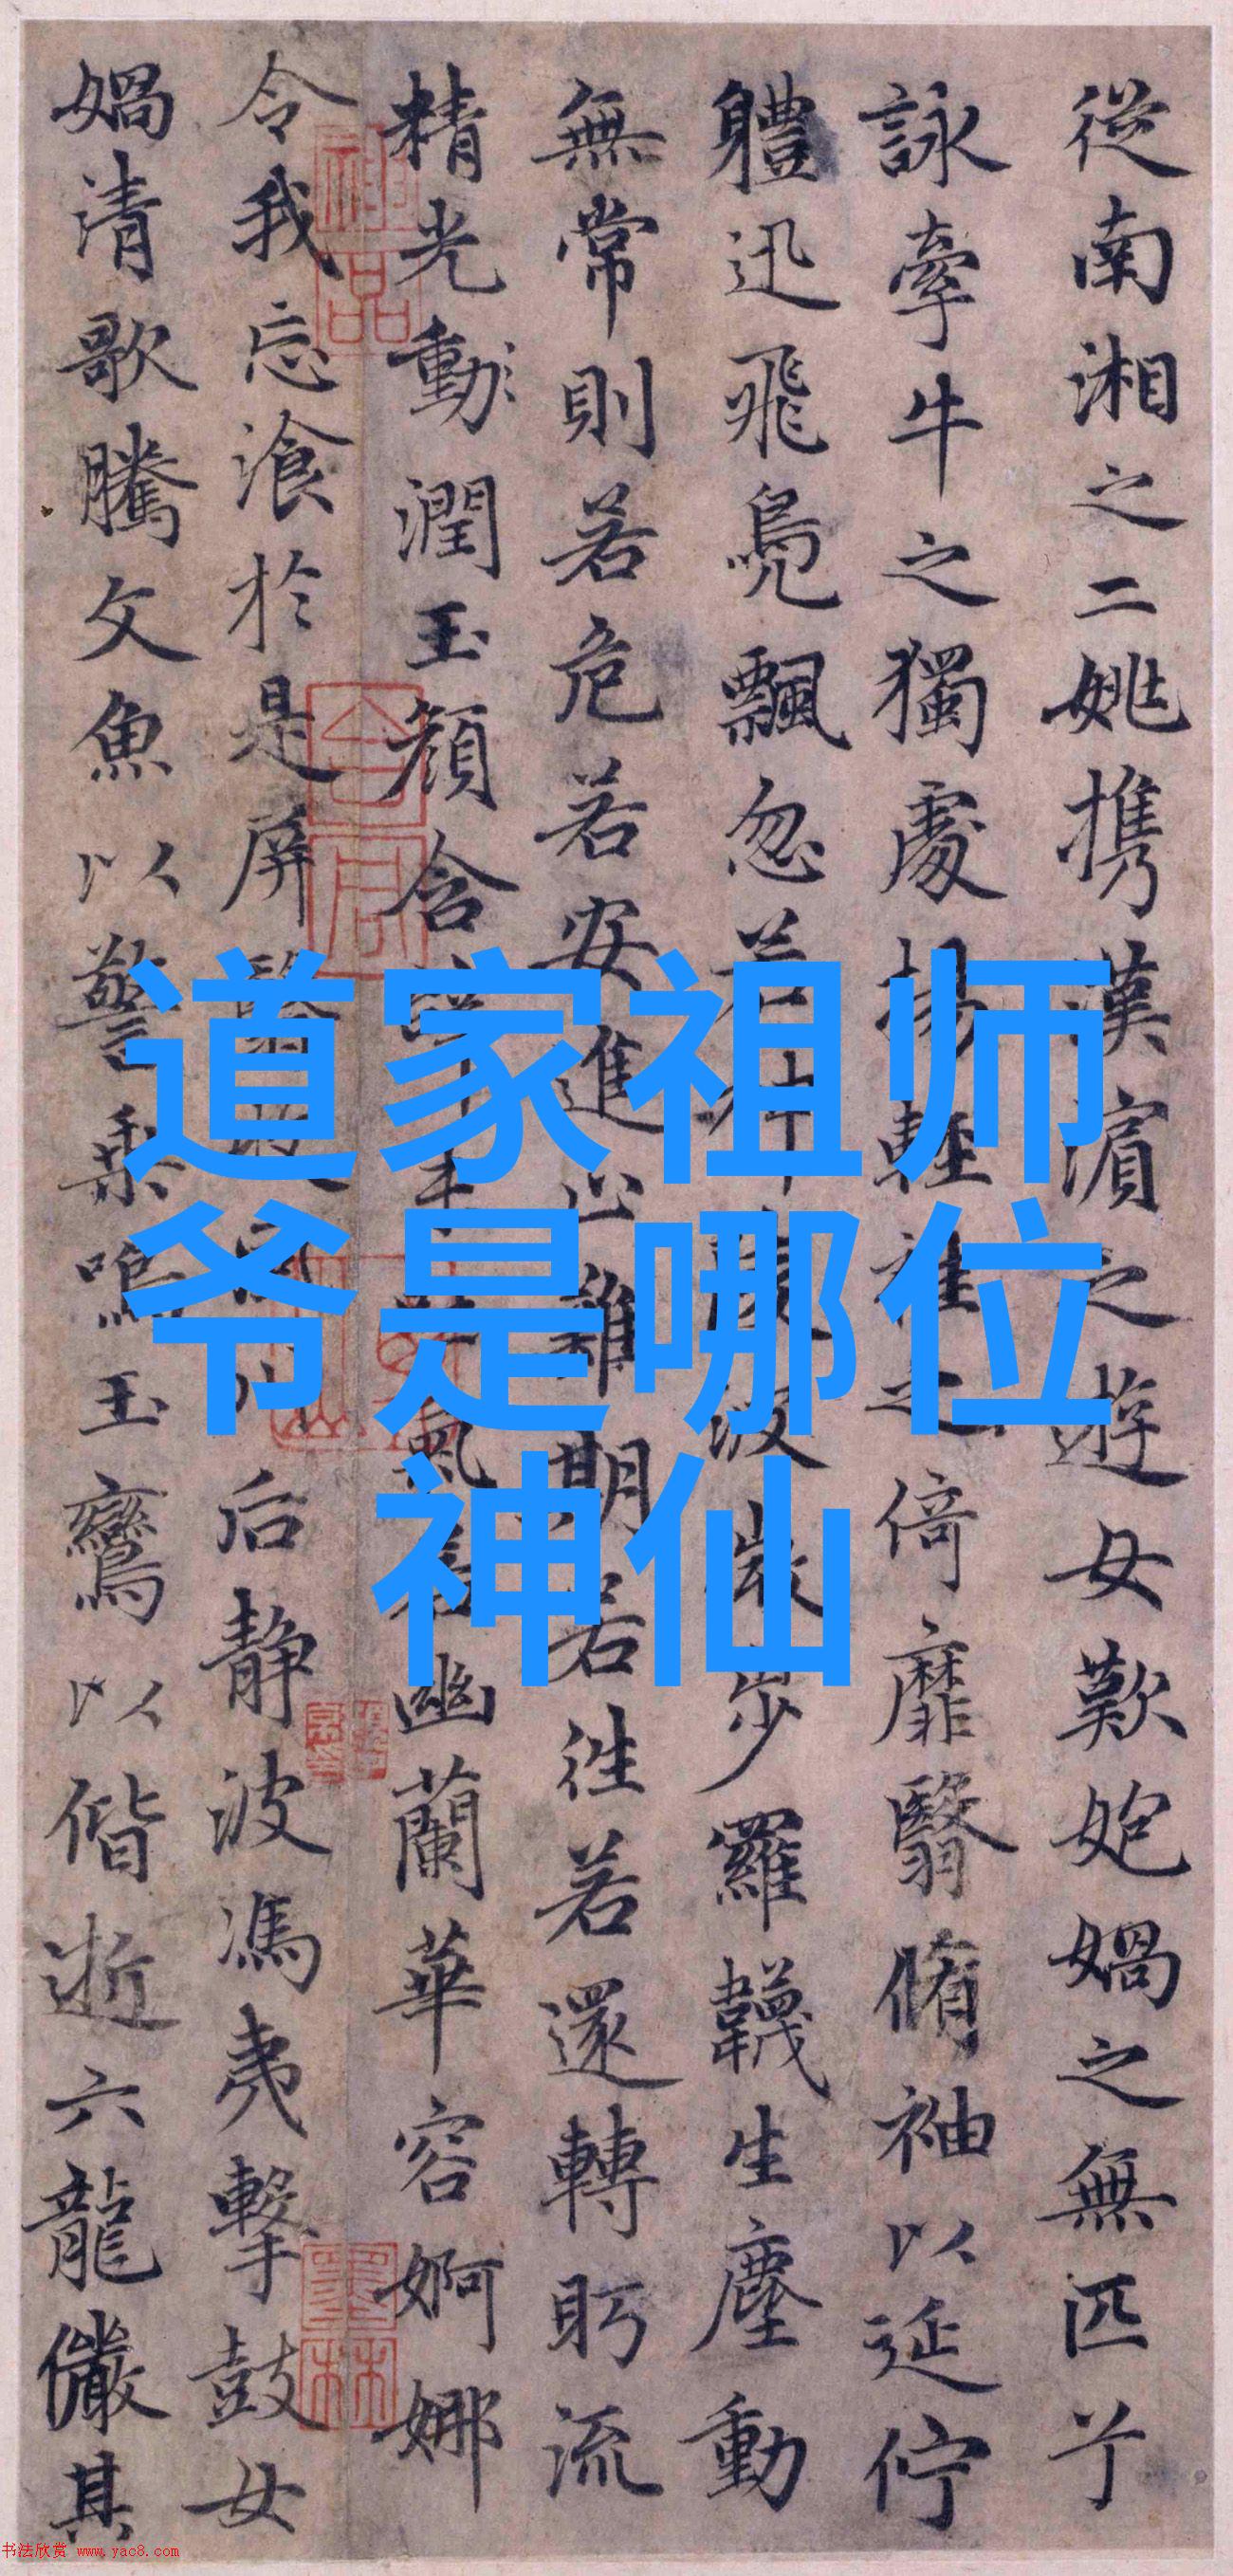 道家祖师
爷是哪位
神仙
從南湘之二姚携漢濱之遊女歎媧之無匹兮
詠牽牛之獨處揚輕袿之倚靡翳脩袖以延佇
軆迅飛鳧飄忽若神陵波微步羅韈生塵動
無常則若危若安進止難期若往若還轉眄流
精光動潤玉顏含辭未吐氣若幽蘭華容婀娜
令我忘飡於是屏翳收風川后靜波馮夷擊鼓女
媧清歌騰文魚以警乘鳴玉鸞以偕逝六龍儼其
神品
墨林
书法欣赏 www.yac8.com